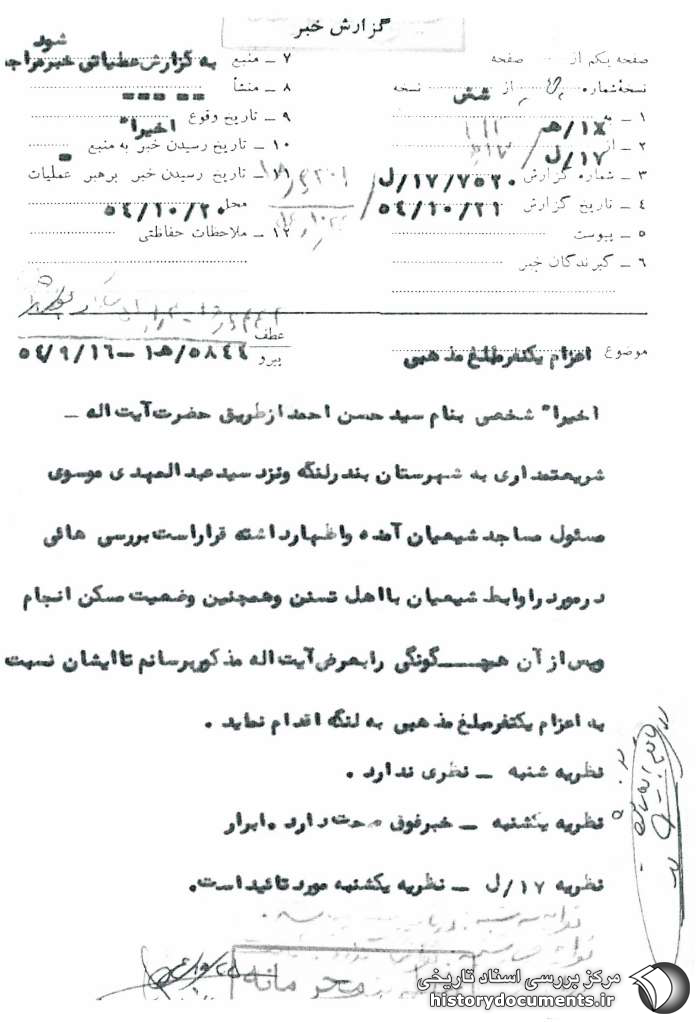 گزارش خبر
صفحه یکم از صفحه
نسخه شماره از شش نسخه
۱ - به ۱۸/هـ
۲ - از ۱۷/ل
۳ - شماره گزارش ۷۵۲۰/۱۷/ل
۴ - تاریخ گزارش ۵۴/۱۰/۲۱
۵ - پیوست
۶ - گیرندگان خبر
۷ - منبع به گزارش عملیاتی خبر مراجعه شود
۸ - منشأ
۹ - تاریخ وقوع اخیرا"
۱۰ - تاریخ رسیدن خبر به منبع
۱۱ - تاریخ رسیدن خبر برهبر عملیات
محل ۵۴/۱۰/۲۰
۱۲ - ملاحظات حفاظتی
موضوع اعزام یکنفر مبلغ مذهبی
عطف
پیرو ۵۸۴۴/هـ۱ - ۵۴/۹/۱۶
اخیرا" شخصی بنام سید حسن احمد ازطریق حضرت آیت اله -
شریعتمداری به شهرستان بندرلنگه ونزد سید عبدالمهدی موسوی
مسئول مساجد شیعیان آمده واظهارداشته قراراست بررسی هائی
درمورد راوابط شیعیان بااهل تسنن وهمچنین وضعیت مسکن انجام
وپس از آن هیچگونگی رابعرض آیت اله مذکور برسانم تاایشان نسبت
به اعزام یکنفرمبلغ مذهبی به لنگه اقدام نماید .
نظریه شنبه - نظری ندارد .
نظریه یکشنبه - خبرفوق صحت دارد .ابرار
نظریه ۱۷/ل - نظریه یکشنبه مورد تائیداست.
محرمانه
مرکز بررسی اسناد تاریخی
historydocuments.ir